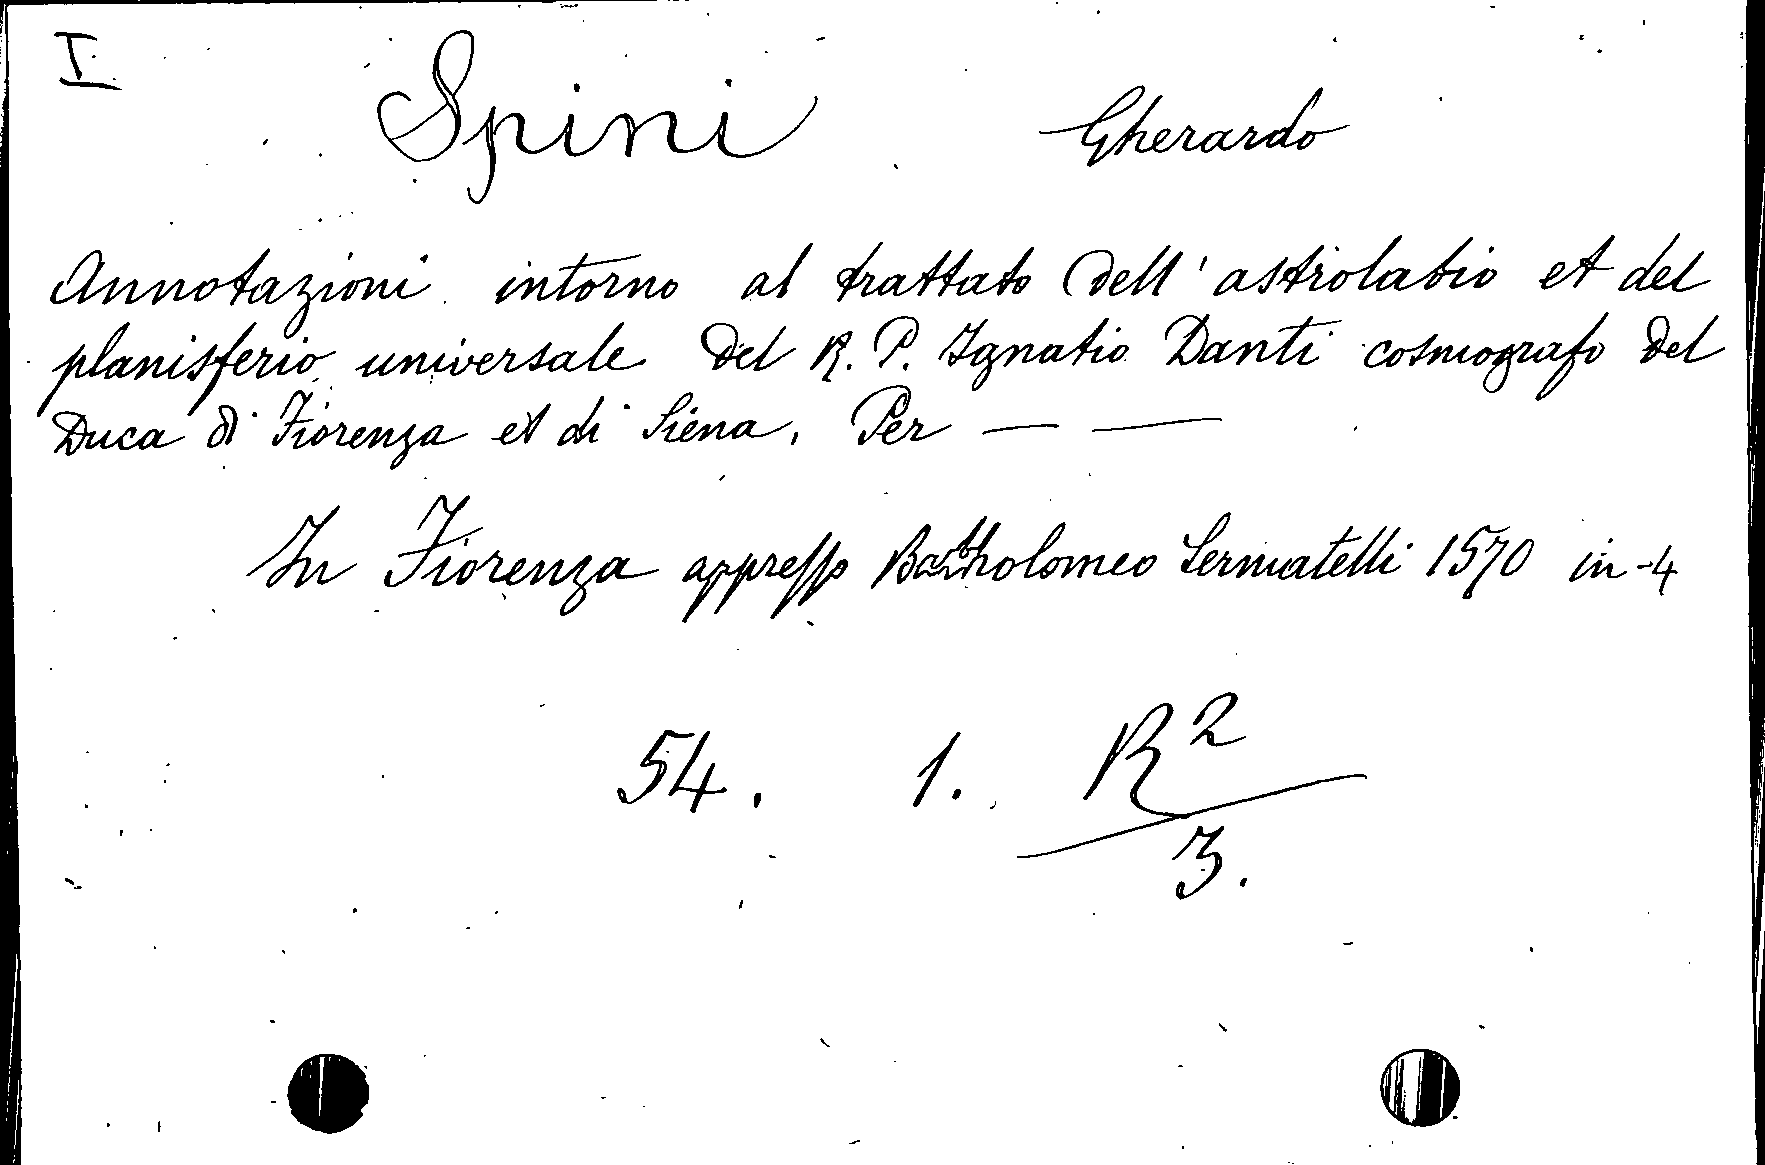 I
Spini Gherardo
Annotazioni intorno al trattato dell'astrolabio et del
planisferio universale del R. P. Ignatio Danti cosmografo del
Duca di Fiorenza et di Siena. Per — —
In Fiorenza appresso Bartholomeo Sermatelli 1570 in-4
54. 1. R2
3.